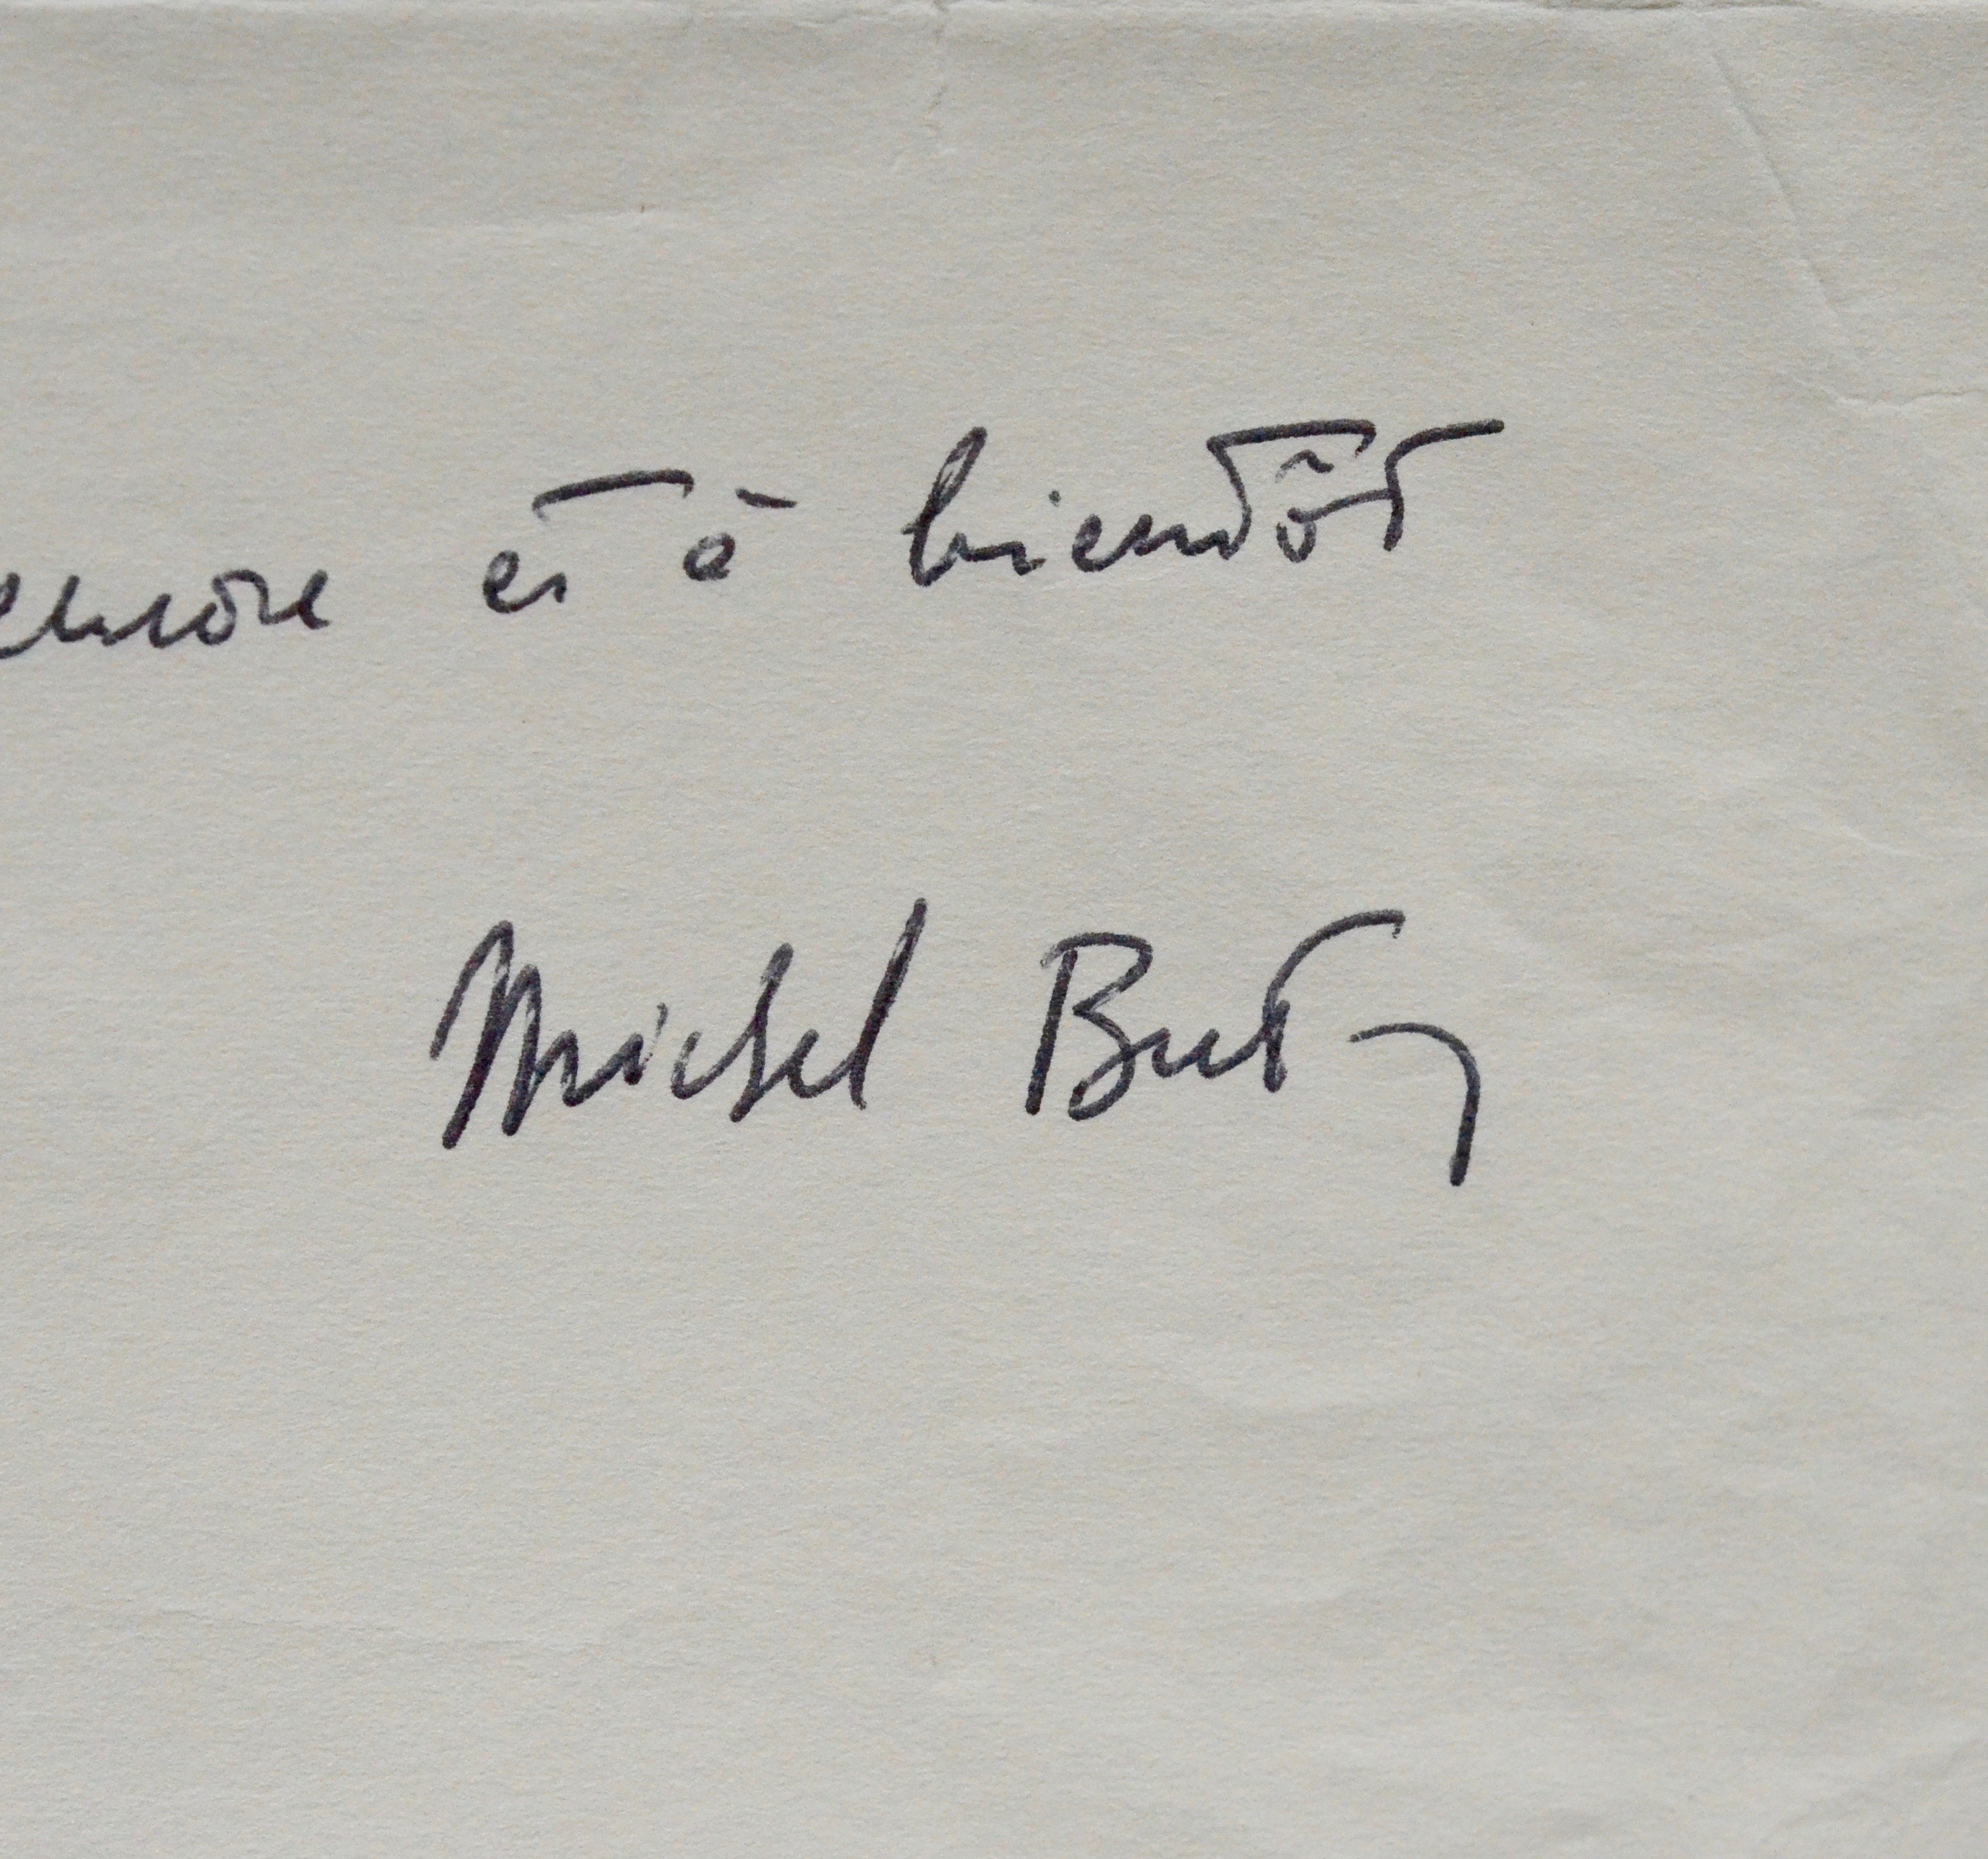 encore et à bientôt
Michel Butor